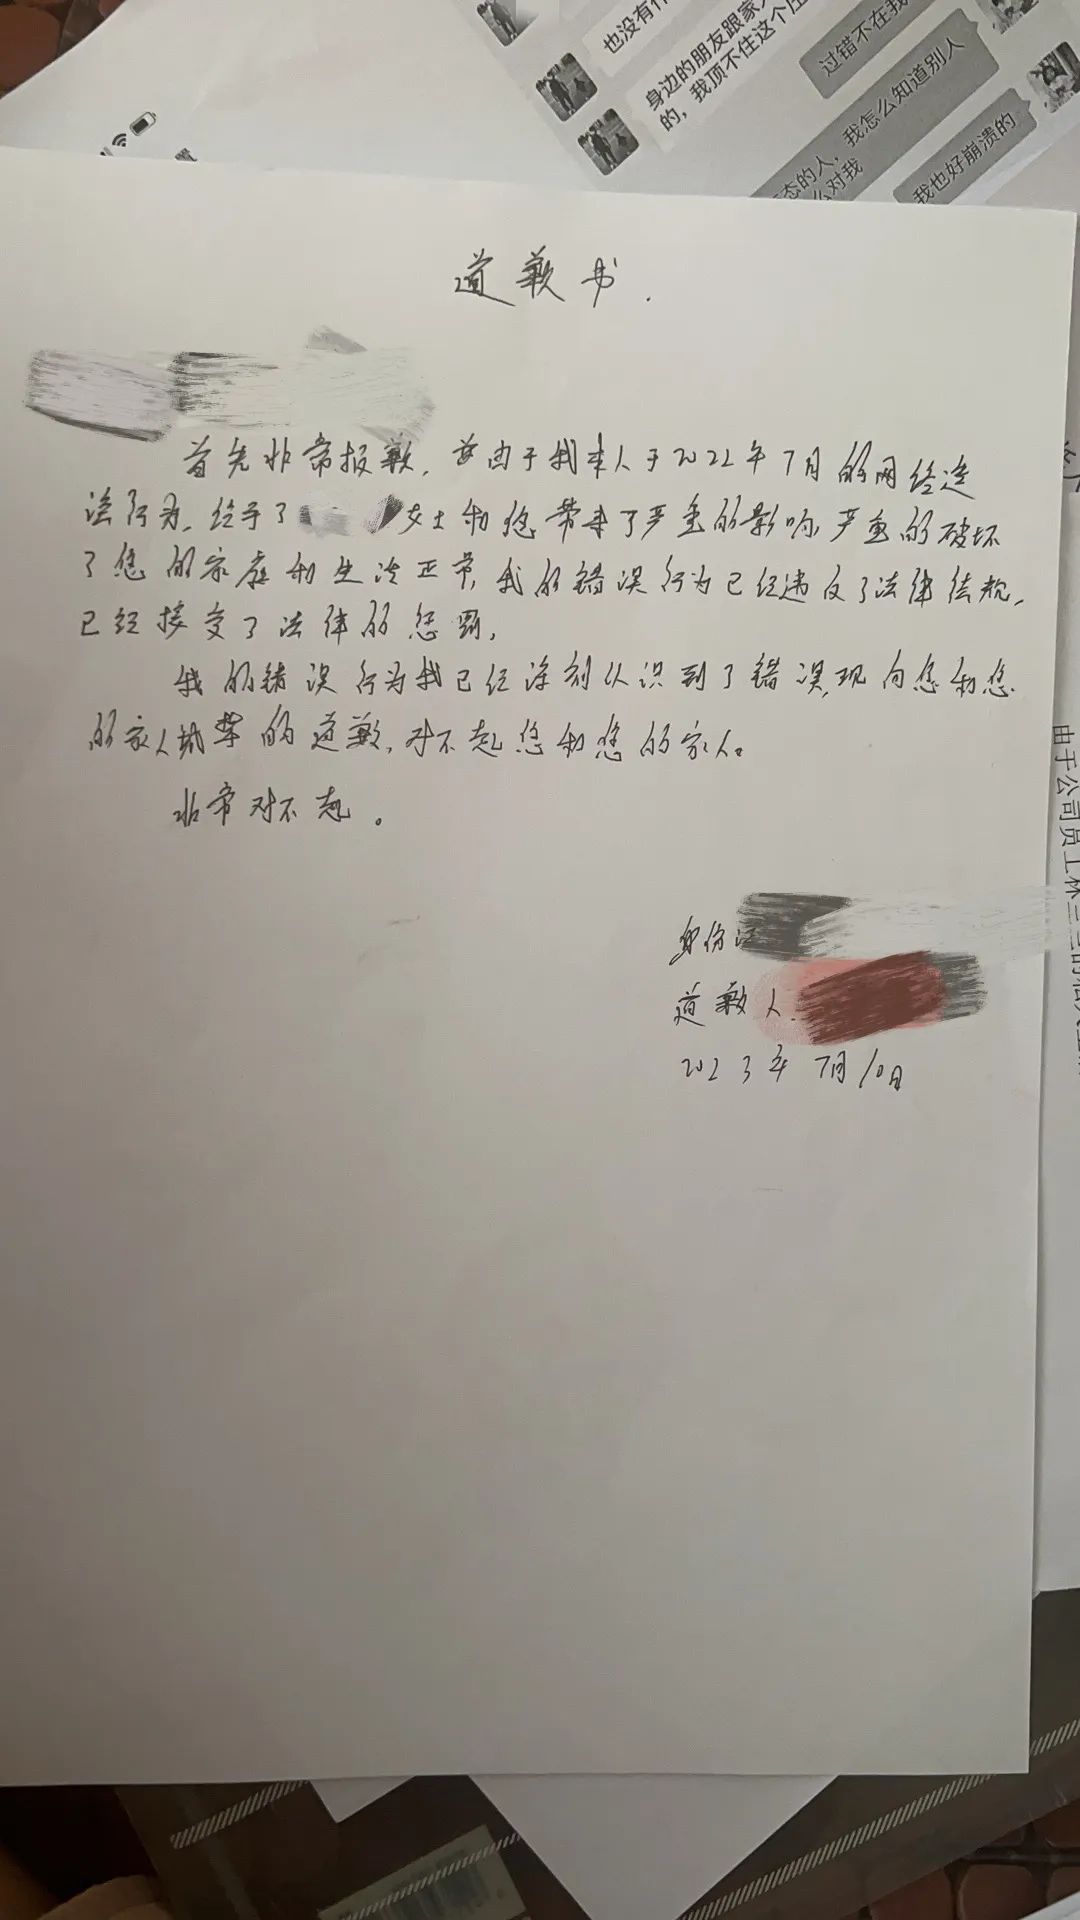 也没有什
身边的朋友跟家人
的，我顶不住这个压
过错不在我
态的人，我怎么知道别人
么对我
我也好崩溃的
道歉书.
首先非常报歉，由于我本人于2022年7月的网络违
法行为，给予了
女士和您带来了严重的影响,严重的破坏
了您的家庭和生活正常，我的错误行为已经违反了法律法规，
已经接受了法律的惩罚，
我的错误行为我已经深刻认识到了错误，现向您和您
的家人诚挚的道歉，对不起您和您的家人。
非常对不起。
身份证
道歉人.
2023年7月10日
由于公司员工林三三的私人